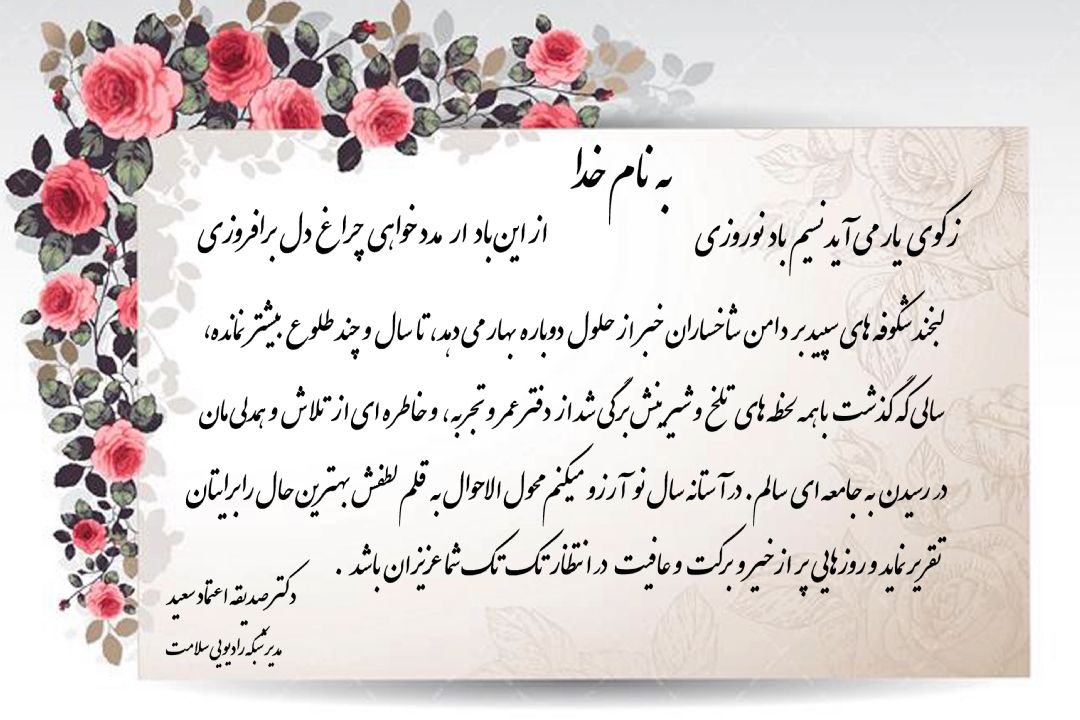 به نام خدا
ز کوی یار می آید نسیم باد نوروزی از این باد ار مدد خواهی چراغ دل برافروزی
لبخند شکوفه های سپید بر دامن شاخساران خبر از حلول دوباره بهار می دهد، تا سال و چند طلوع بیشتر نمانده،
سالی که گذشت با همه لحظه های تلخ و شیرینش برگی شد از دفتر عمر و تجربه، و خاطره ای از تلاش و همدلی مان
در رسیدن به جامعه ای سالم. در آستانه سال نو آرزو میکنم محول الاحوال به قلم لطفش بهترین حال را برایتان
تقریر نماید و روزهایی پر از خیر و برکت و عافیت در انتظار تک تک شما عزیزان باشد .
دکتر صدیقه اعتماد سعید
مدیر شبکه رادیویی سلامت